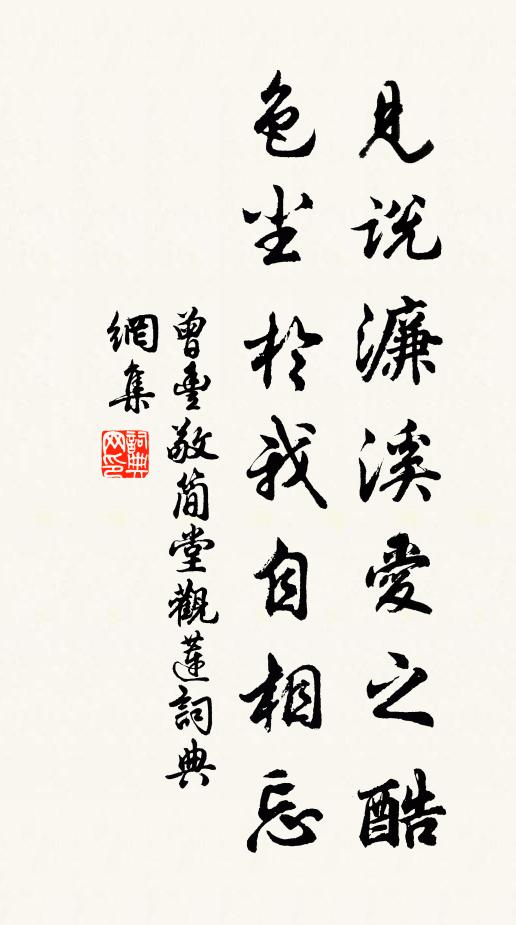 見説濂溪愛之酷
色尘於我自相忘
曾豐敬简堂觀蓮詞典
網集
詞典网印